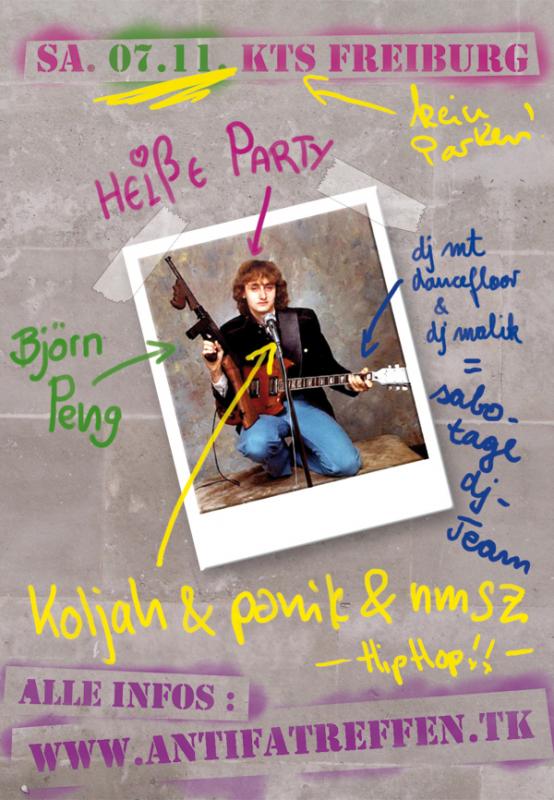 SA. 07.11. KTS FREIBURG
kein
Parken!
HEIßE PARTY
dj mt
dancefloor
&
dj malik
=
sabo-
tage
dj-
Team
Björn
Peng
Koljah & panik & nmsz
- HipHop!! -
ALLE INFOS :
WWW.ANTIFATREFFEN.TK